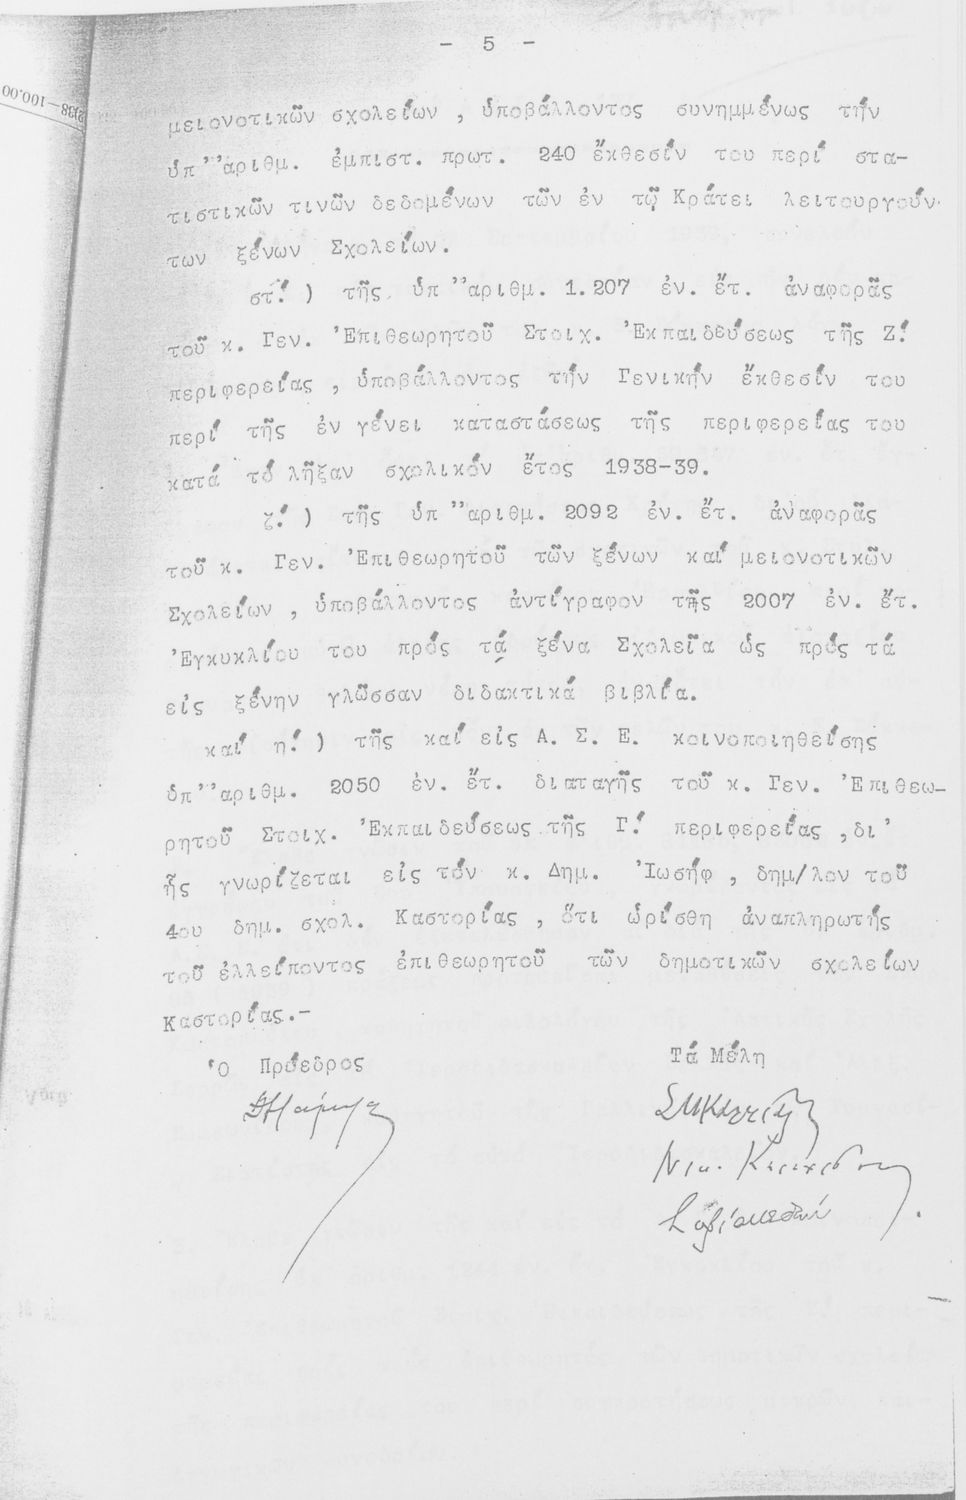 - 5 -
μειονοτικῶν σχολείων , ὑποβάλλοντος συνημμένως τήν
ὑπ’’ἀριθμ. ἐμπιστ. πρωτ. 240 ἔκθεσίν του περί στα-
τιστικῶν τινῶν δεδομένων τῶν ἐν τῷ Κράτει λειτουργούν-
των ξένων Σχολείων.
στ!) τῆς ὑπ’’ἀριθμ. 1.207 ἐν. ἔτ. ἀναφορᾶς
τοῦ κ. Γεν. Ἐπιθεωρητοῦ Στοιχ. Ἐκπαιδεύσεως τῆς Ζ!
περιφερείας , ὑποβάλλοντος τήν Γενικήν ἔκθεσίν του
περί τῆς ἐν γένει καταστάσεως τῆς περιφερείας του
κατά τό λῆξαν σχολικόν ἔτος 1938-39.
ζ!) τῆς ὑπ’’ἀριθμ. 2092 ἐν. ἔτ. ἀναφορᾶς
τοῦ κ. Γεν. Ἐπιθεωρητοῦ τῶν ξένων καί μειονοτικῶν
Σχολείων , ὑποβάλλοντος ἀντίγραφον τῆς 2007 ἐν. ἔτ.
Ἐγκυκλίου του πρός τά ξένα Σχολεῖα ὡς πρός τά
εἰς ξένην γλῶσσαν διδακτικά βιβλία.
καί η!) τῆς καί εἰς Α. Σ. Ε. κοινοποιηθείσης
ὑπ’’ἀριθμ. 2050 ἐν. ἔτ. διαταγῆς τοῦ κ. Γεν. Ἐπιθεω-
ρητοῦ Στοιχ. Ἐκπαιδεύσεως τῆς Γ! περιφερείας ,δι’
ἧς γνωρίζεται εἰς τόν κ. Δημ. Ἰωσήφ , δημ/λον τοῦ
4ου δημ. σχολ. Καστορίας , ὅτι ὡρίσθη ἀναπληρωτής
τοῦ ἐλλείποντος ἐπιθεωρητοῦ τῶν δημοτικῶν σχολείων
Καστορίας.-
Ὁ Πρόεδρος
Τά Μέλη
Νικ.